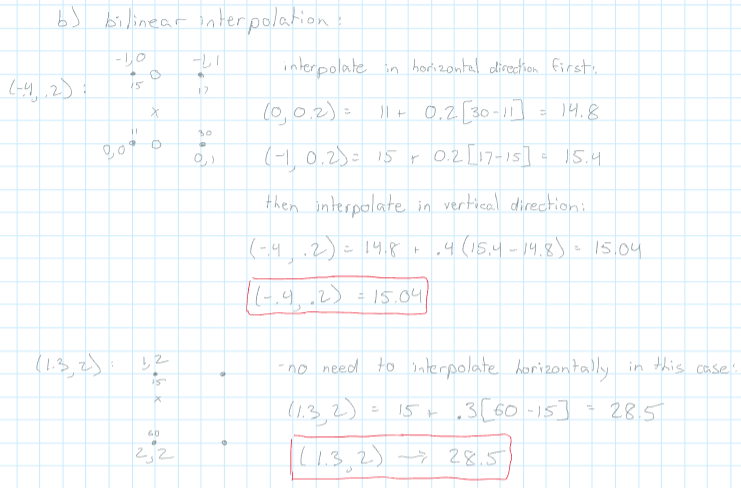 b) bilinear interpolation:
-1,0 -1,1
interpolate in horizontal direction first:
(-.4, .2):
15 17
x
(0, 0.2) = 11 + 0.2[30-11] = 14.8
11 30
0,0 0,1
(-1, 0.2) = 15 + 0.2[17-15] = 15.4
then interpolate in vertical direction:
(-.4, .2) = 14.8 + .4(15.4 - 14.8) = 15.04
(-.4, .2) = 15.04
(1.3, 2): 1,2
-no need to interpolate horizontally in this case:
15
x
(1.3, 2) = 15 + .3[60-15] = 28.5
60
2,2
(1.3, 2) → 28.5